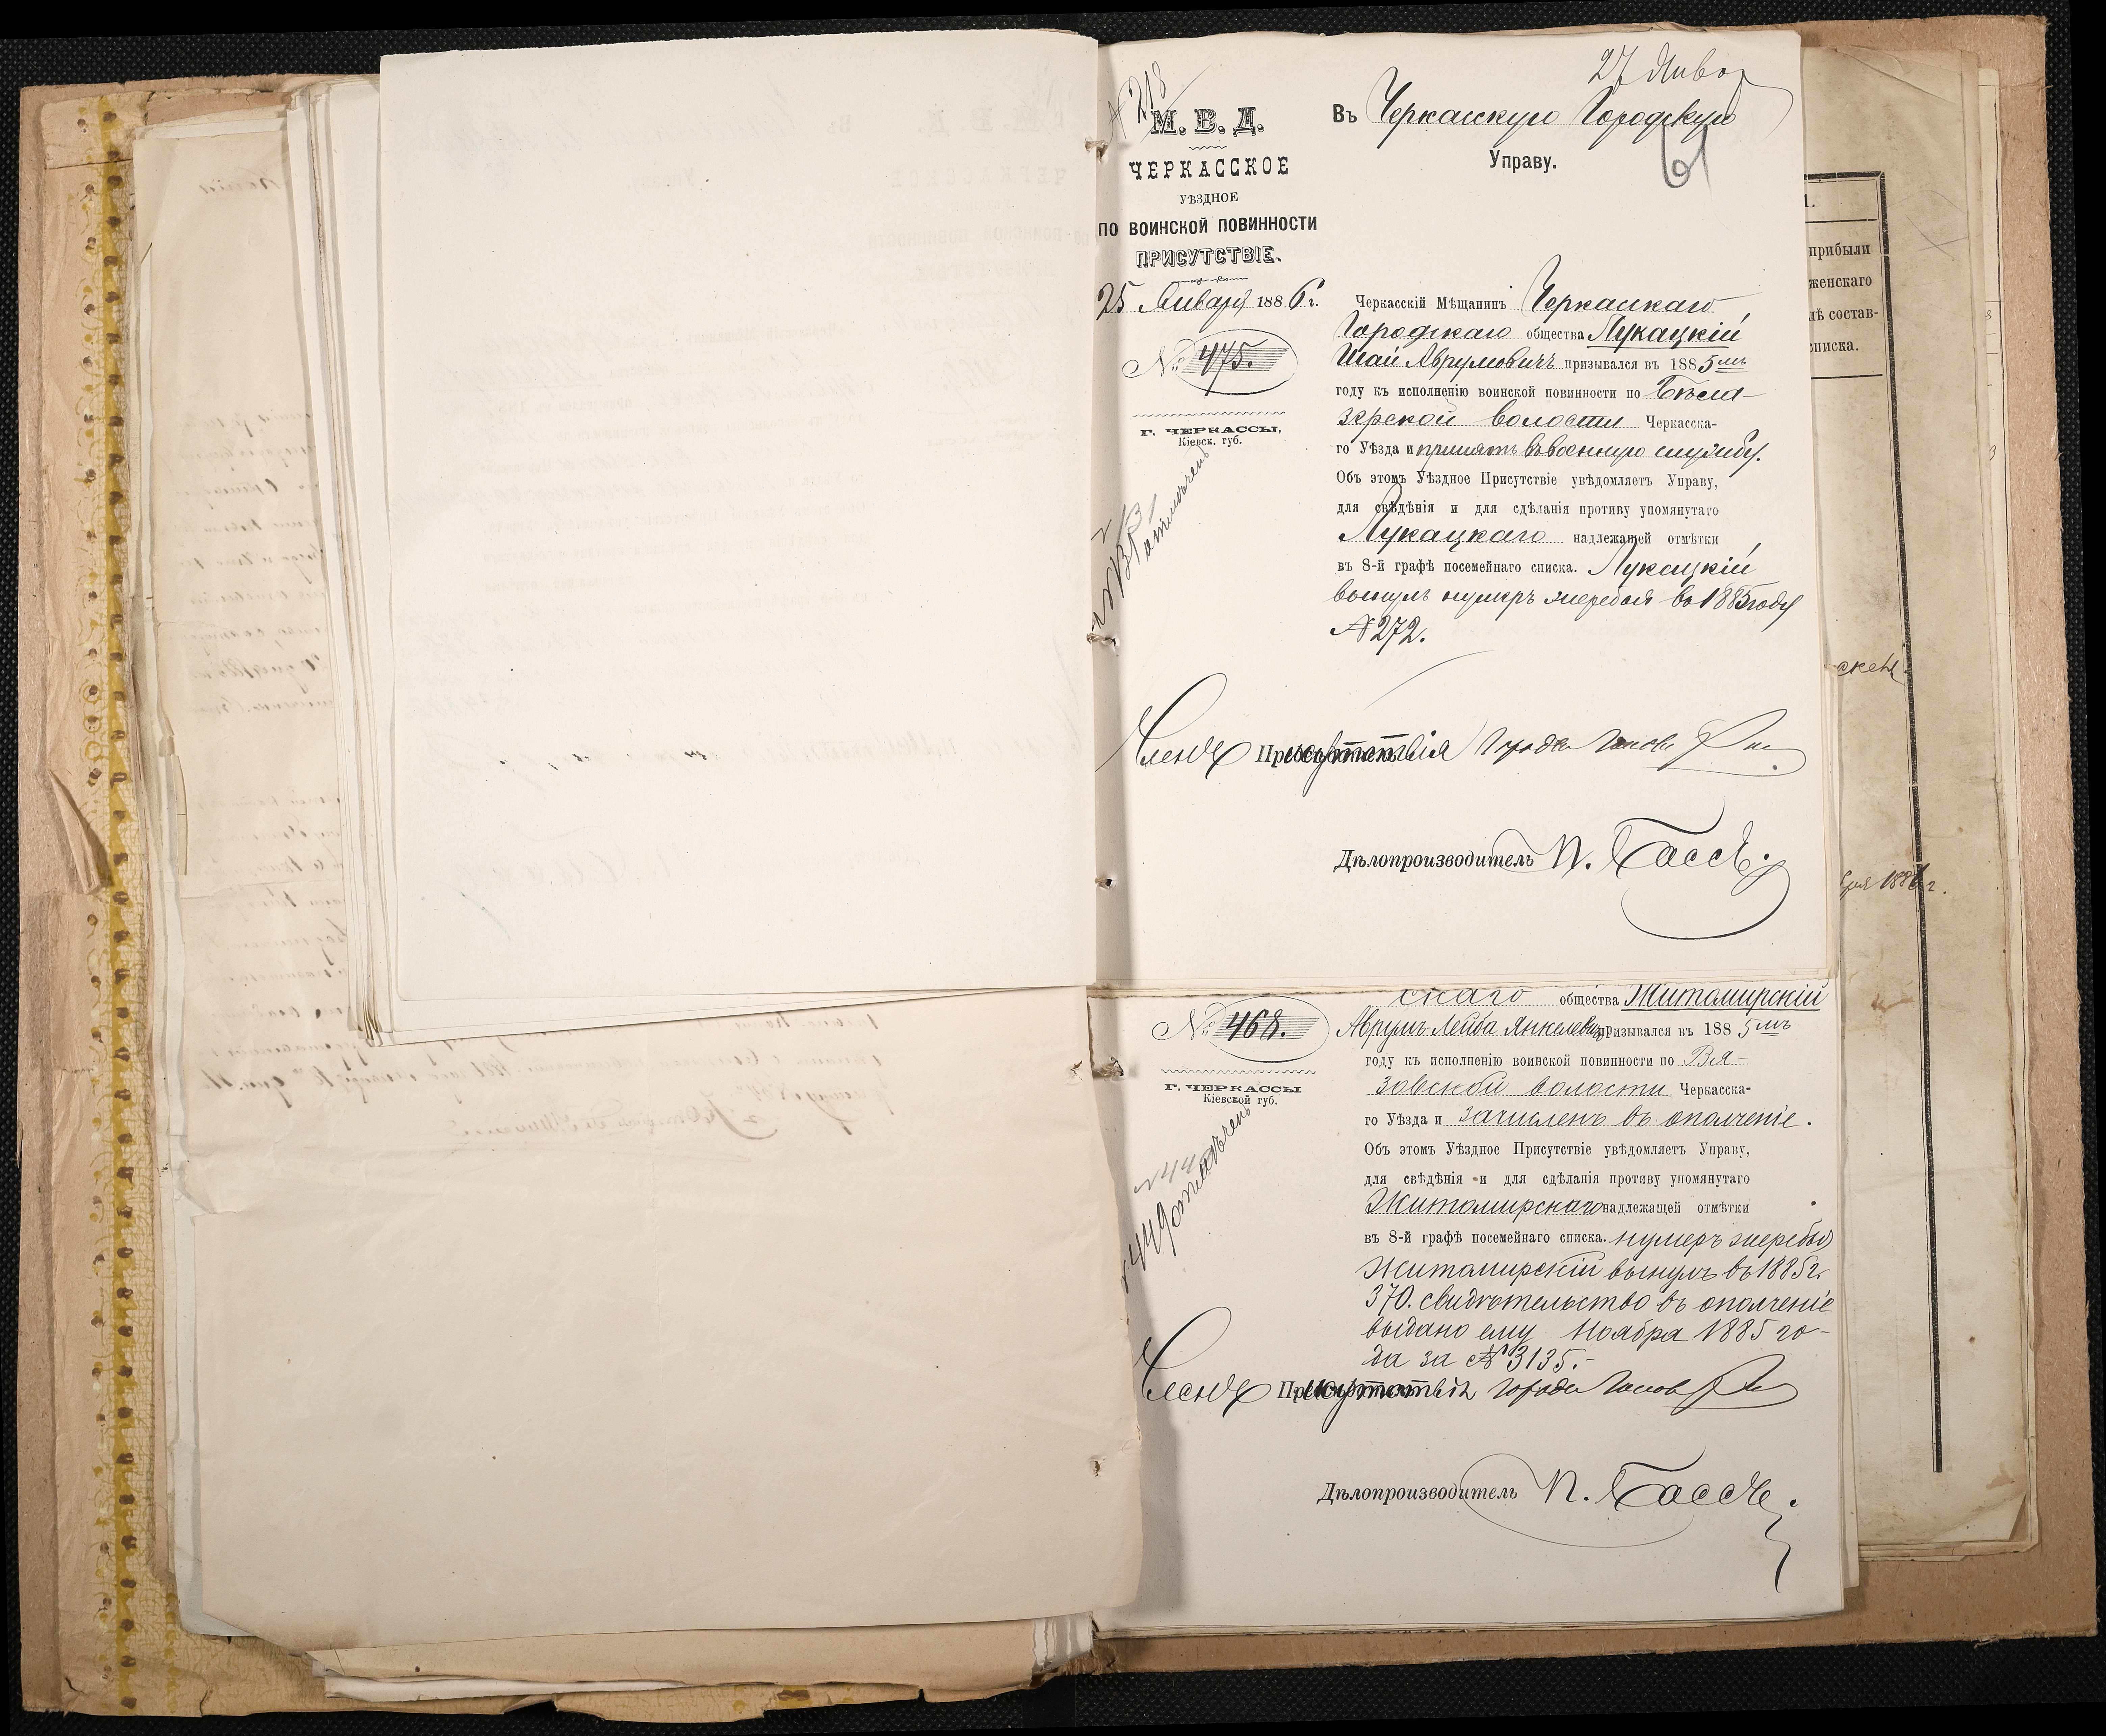 № 218
27 Янва
М. В. Д.
ЧЕРКАССКОЕ
УѢЗДНОЕ
ПО ВОИНСКОЙ ПОВИННОСТИ
ПРИСУТСТВІЕ.
25 Января 1886 г.
№ 475.
Г. ЧЕРКАССЫ,
Кіевск. губ.
отмѣченъ
Въ Черкасскую Городскую
Управу.
61
Черкасскій Мѣщанинъ Черкасскаго
Городскаго общества Лукацкій
Шай Аврумовичъ призывался въ 1885мъ
году къ исполненію воинской повинности по Бѣло-
зерской волости Черкасска-
го Уѣзда и принятъ въ военную службу.
Объ этомъ Уѣздное Присутствіе увѣдомляетъ Управу,
для свѣдѣнія и для сдѣланія противу упомянутаго
Лукацкаго надлежащей отмѣтки
въ 8-й графѣ посемейнаго списка. Лукацкій
вынулъ нумеръ жеребья въ 1885 году
№ 272.
Членъ Присутствія
Дѣлопроизводитель П. Бассъ.
скаго общества Житомирскій
№ 468.
Аврумъ-Лейба Янкелевъ призывался въ 1885мъ
году къ исполненію воинской повинности по Вя-
зовской волости Черкасска-
Г. ЧЕРКАССЫ
Кіевской губ.
449 отмѣченъ
го Уѣзда и зачисленъ въ ополченіе.
Объ этомъ Уѣздное Присутствіе увѣдомляетъ Управу,
для свѣдѣнія и для сдѣланія противу упомянутаго
Житомирскаго надлежащей отмѣтки
въ 8-й графѣ посемейнаго списка. нумеръ жеребья
Житомирскій вынулъ въ 1885 г.
370. свидѣтельство въ ополченіе
выдано ему Ноября 1885 го-
да за № 3135.-
Членъ Присутствія
Дѣлопроизводитель П. Бассъ.
прибыли
женскаго
состав-
списка.
1886 г.